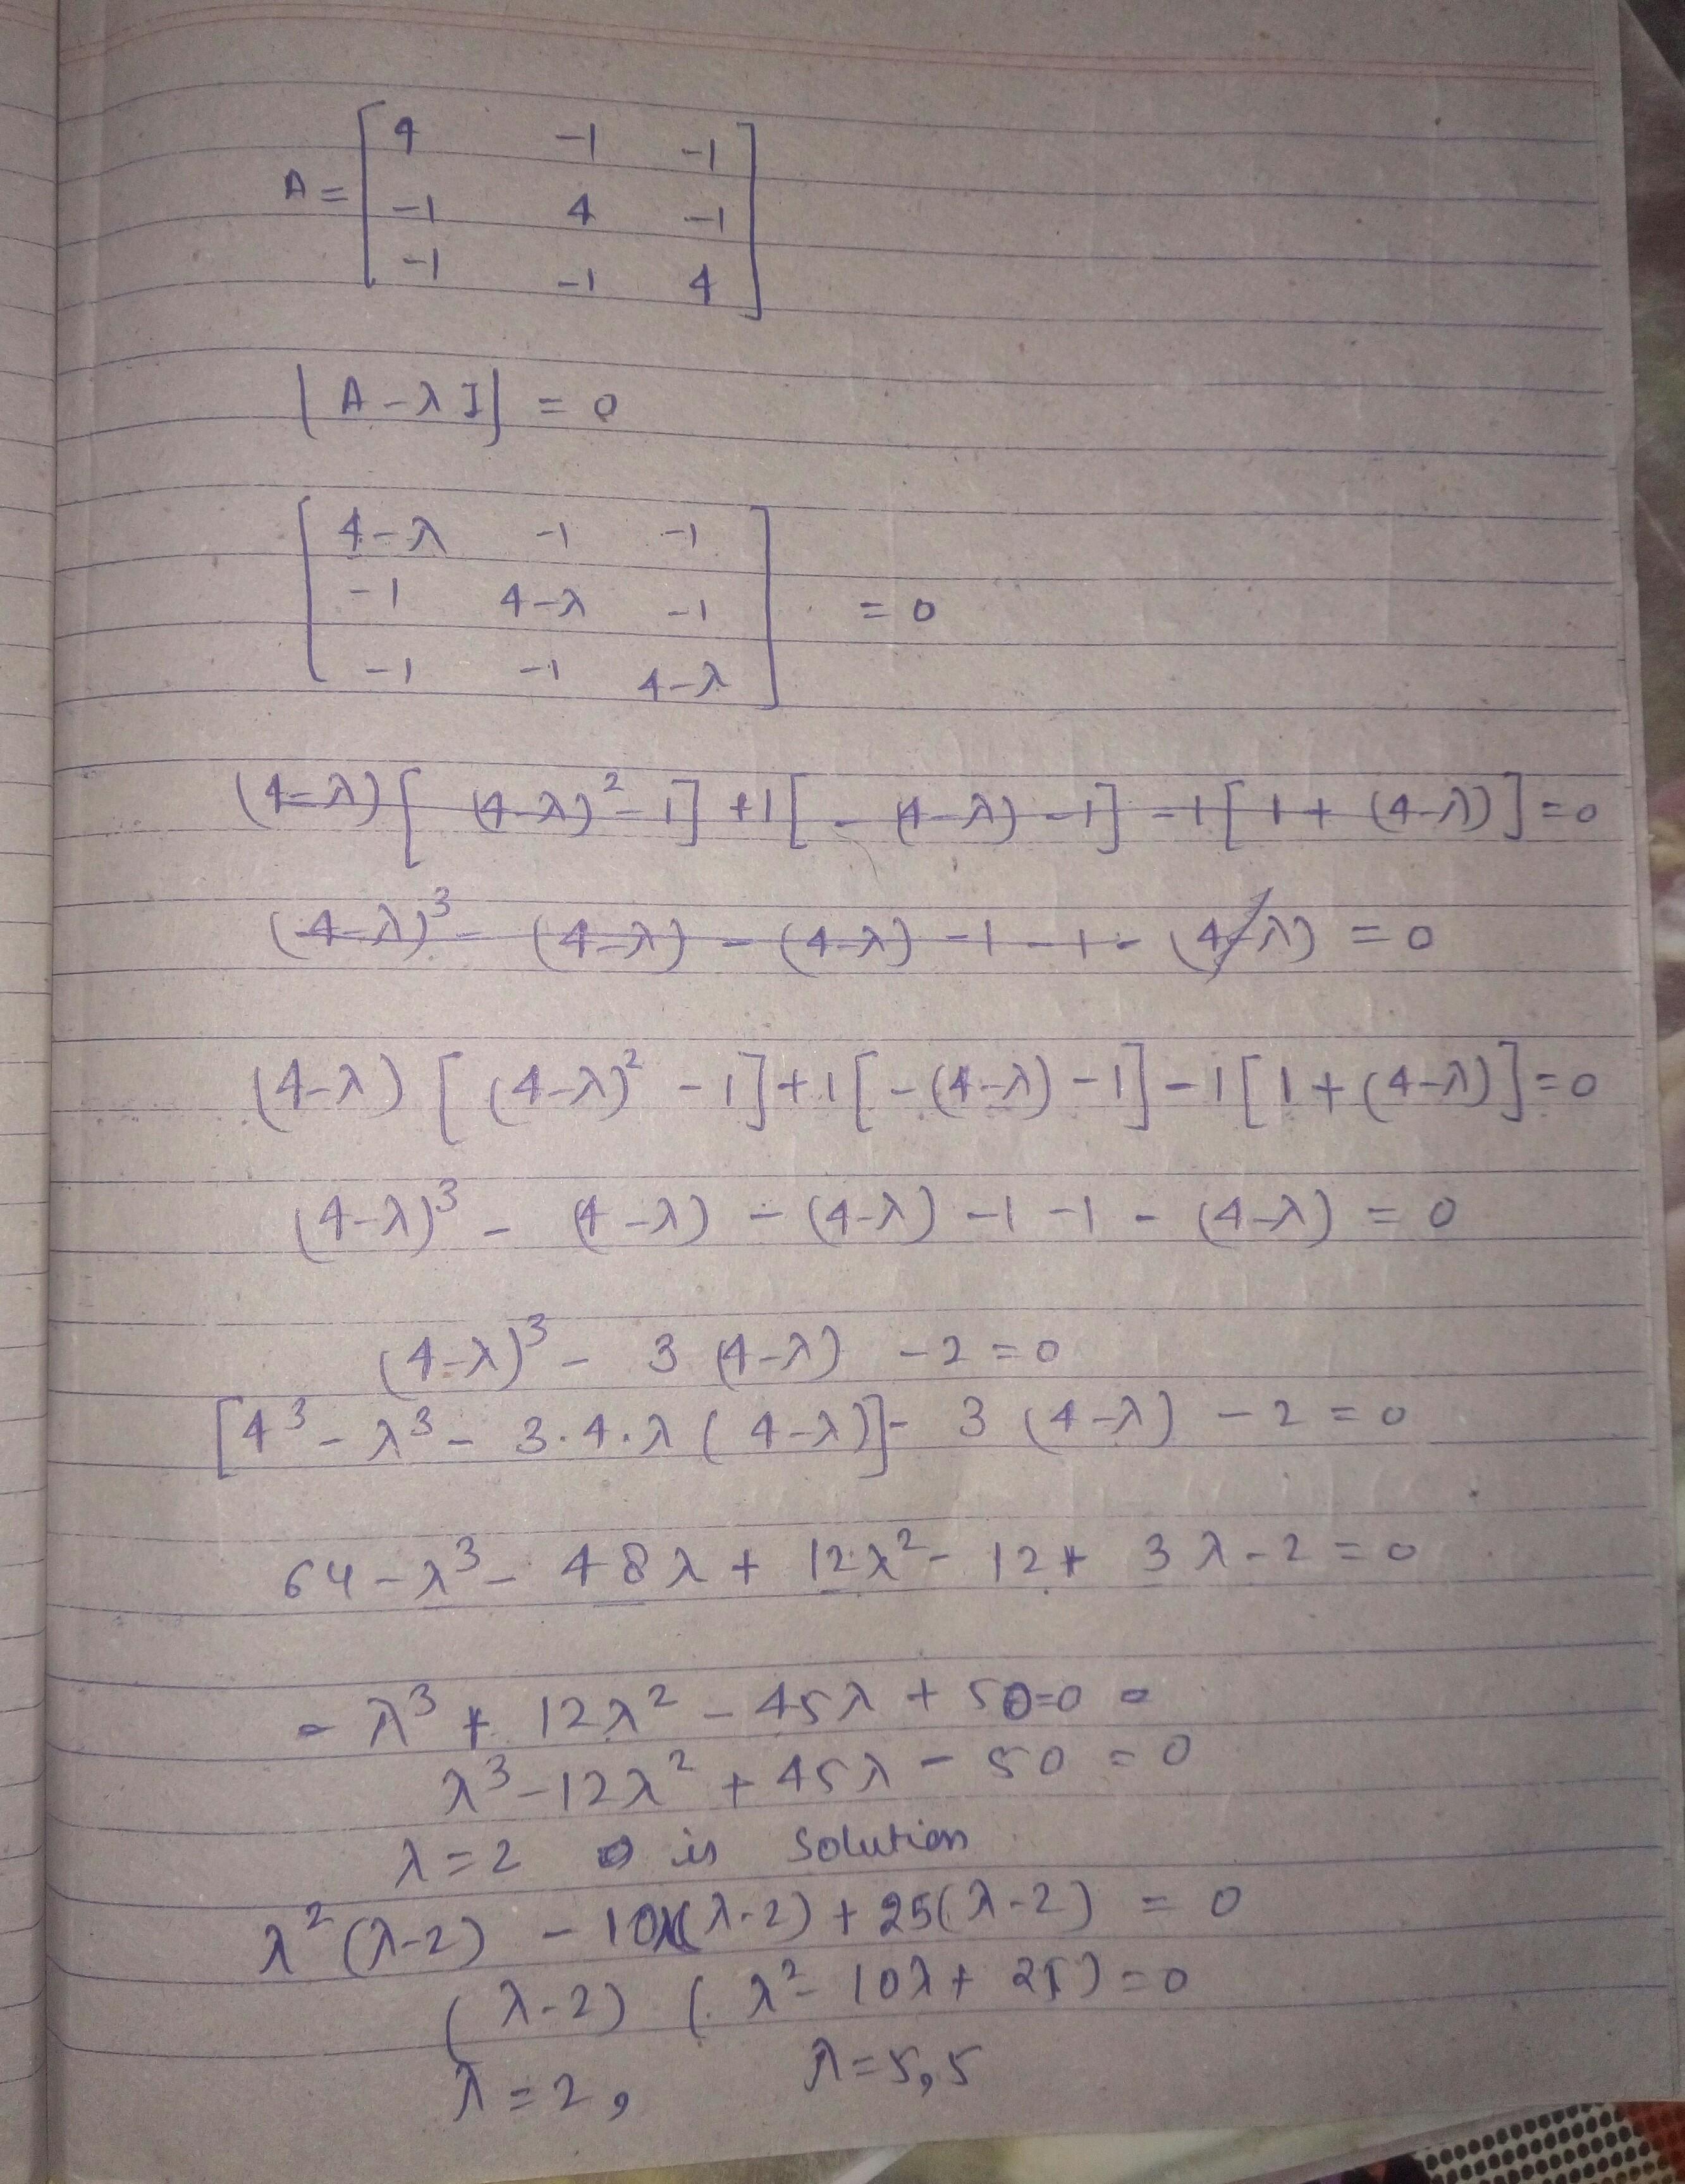 A = [ 4 -1 -1
-1 4 -1
-1 -1 4 ]
|A-λI| = 0
[ 4-λ -1 -1
-1 4-λ -1 = 0
-1 -1 4-λ ]
(4-λ)[(4-λ)² - 1] + 1[-(4-λ) - 1] - 1[1 + (4-λ)] = 0
(4-λ)³ - (4-λ) - (4-λ) - 1 - 1 - (4-λ) = 0
(4-λ)[(4-λ)² - 1] + 1[-(4-λ) - 1] - 1[1 + (4-λ)] = 0
(4-λ)³ - (4-λ) - (4-λ) - 1 - 1 - (4-λ) = 0
(4-λ)³ - 3(4-λ) - 2 = 0
[4³ - λ³ - 3·4·λ(4-λ)] - 3(4-λ) - 2 = 0
64 - λ³ - 48λ + 12λ² - 12 + 3λ - 2 = 0
- λ³ + 12λ² - 45λ + 50 = 0
λ³ - 12λ² + 45λ - 50 = 0
λ = 2 is solution
λ²(λ-2) - 10λ(λ-2) + 25(λ-2) = 0
(λ-2)(λ² - 10λ + 25) = 0
λ = 2, λ = 5,5